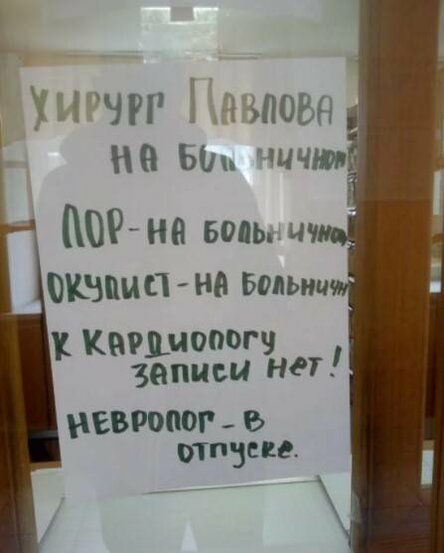 Хирург Павлова
на больничном
ЛОР - на больничном
окулист - на больничн
к кардиологу
записи нет!
невролог - в
отпуске.